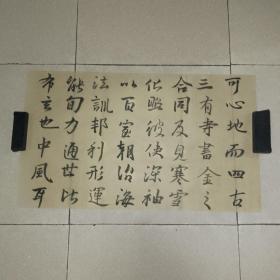 可心地而四古
三有幸書金之
合同及見寒雪
化貽彼使深袖
以百室朝治海
法訓邦利形運
能旬力通世比
市言也中風耳